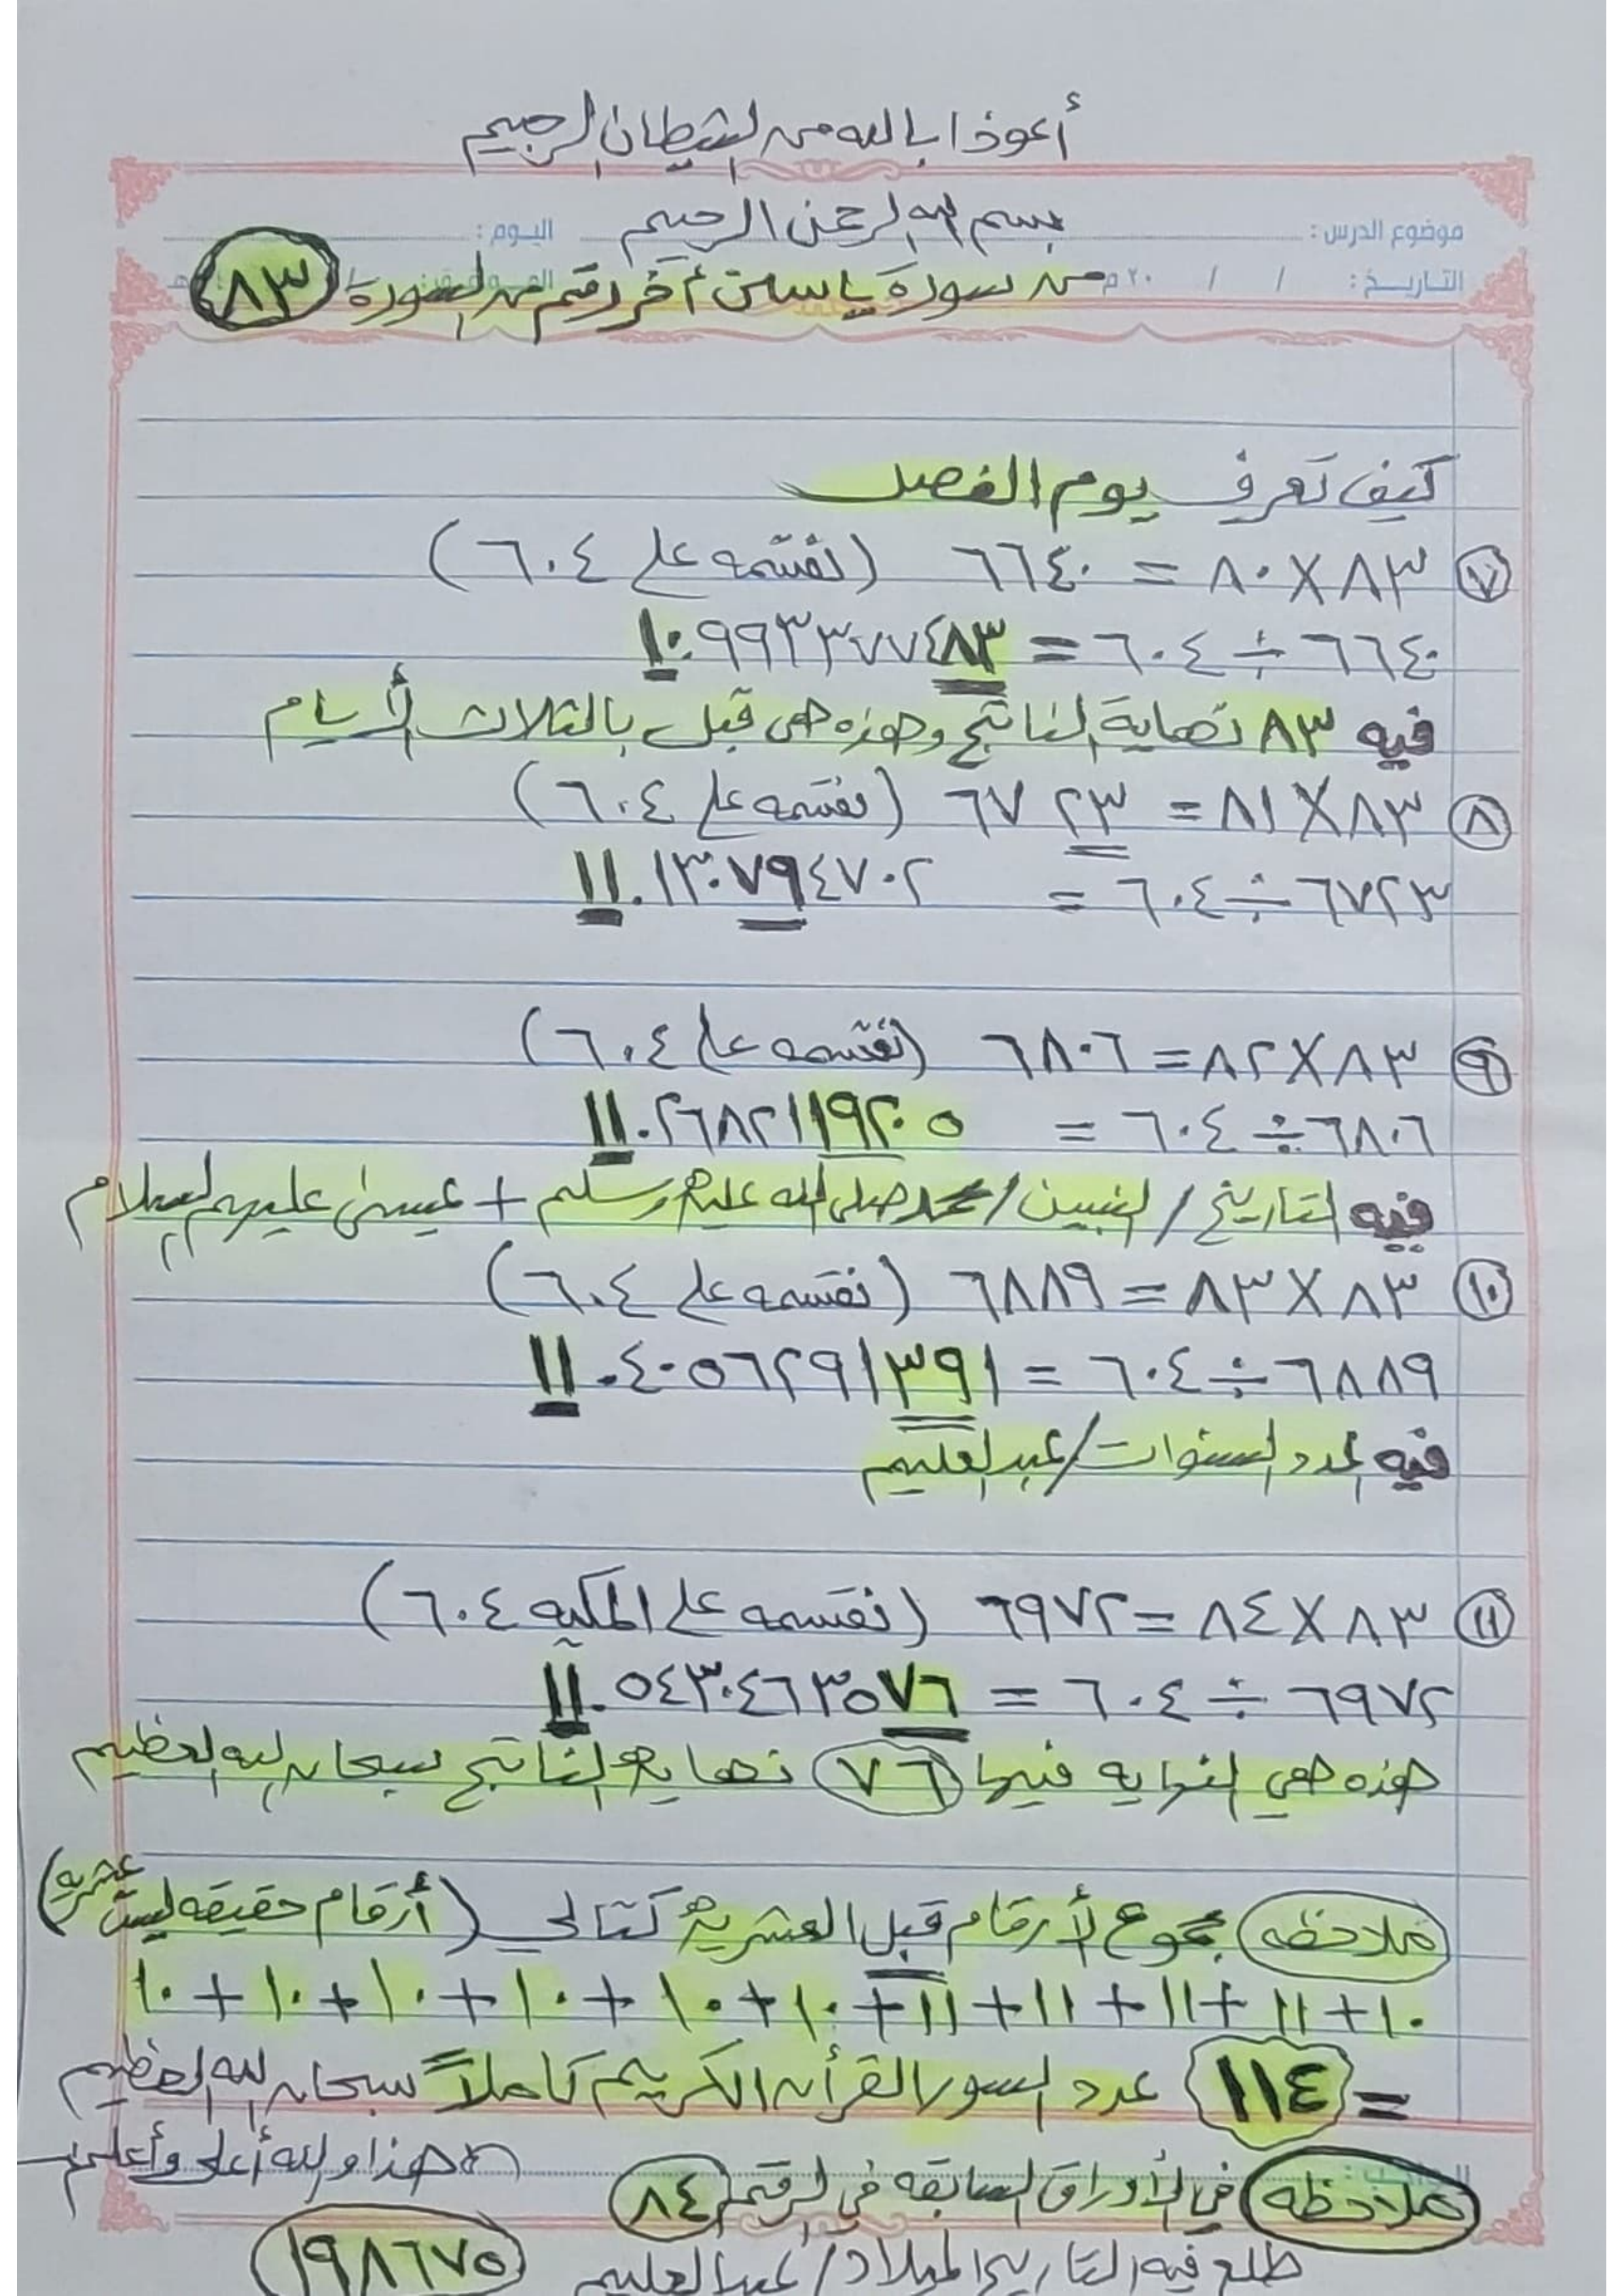 أعوذ بالله من الشيطان الرجيم
بسم الله الرحمن الرحيم
موضوع الدرس : اليوم :
من سورة ياسين أخر رقم من السورة / ٨٣
التاريخ : / / ٢٠ م
كيف تعرف يوم الفصل
٧ ٨٣ × ٨٠ = ٦٦٤٠ (نقسمه على ٦٠٤)
٦٦٤٠ ÷ ٦٠٤ = ١٠.٩٩٣٣٧٧٤٨٣
فيه ٨٣ نهاية الناتج وهذه هي قبل بالثلاث أيام
٨ ٨٣ × ٨١ = ٦٧٢٣ (نقسمه على ٦٠٤)
٦٧٢٣ ÷ ٦٠٤ = ١١.١٣٠٧٩٤٧٠٢
٩ ٨٣ × ٨٢ = ٦٨٠٦ (نقسمه على ٦٠٤)
٦٨٠٦ ÷ ٦٠٤ = ١١.٢٦٨٢١١٩٢٠٥
فيه التاريخ / النبيين / محمد صلى الله عليه وسلم + عيسى عليهم السلام
١٠ ٨٣ × ٨٣ = ٦٨٨٩ (نقسمه على ٦٠٤)
٦٨٨٩ ÷ ٦٠٤ = ١١.٤٠٥٦٢٩١٣٩١
فيه عدد السنوات / عبد العليم
١١ ٨٣ × ٨٤ = ٦٩٧٢ (نقسمه على المكيه ٦٠٤)
٦٩٧٢ ÷ ٦٠٤ = ١١.٥٤٣٠٤٦٣٥٧٦
هذه هي النهايه فيها ٧٦ نهاية الناتج سبحان الله العظيم
ملاحظه مجموع الأرقام قبل العشرية كتالي (أرقام حقيقه ليست عشريه)
١٠ + ١١ + ١١ + ١١ + ١١ + ١٠ + ١٠ + ١٠ + ١٠ + ١٠ + ١٠
= ١١٤ عدد السور القرأن الكريم كاملاً سبحان الله العظيم
هذا والله أعلى وأعلم
ملاحظه في الأوراق السابقه في الرقم ٨٤
طلع فيه التاريخ الميلاد / عبد العليم ١٩٨٦٧٥